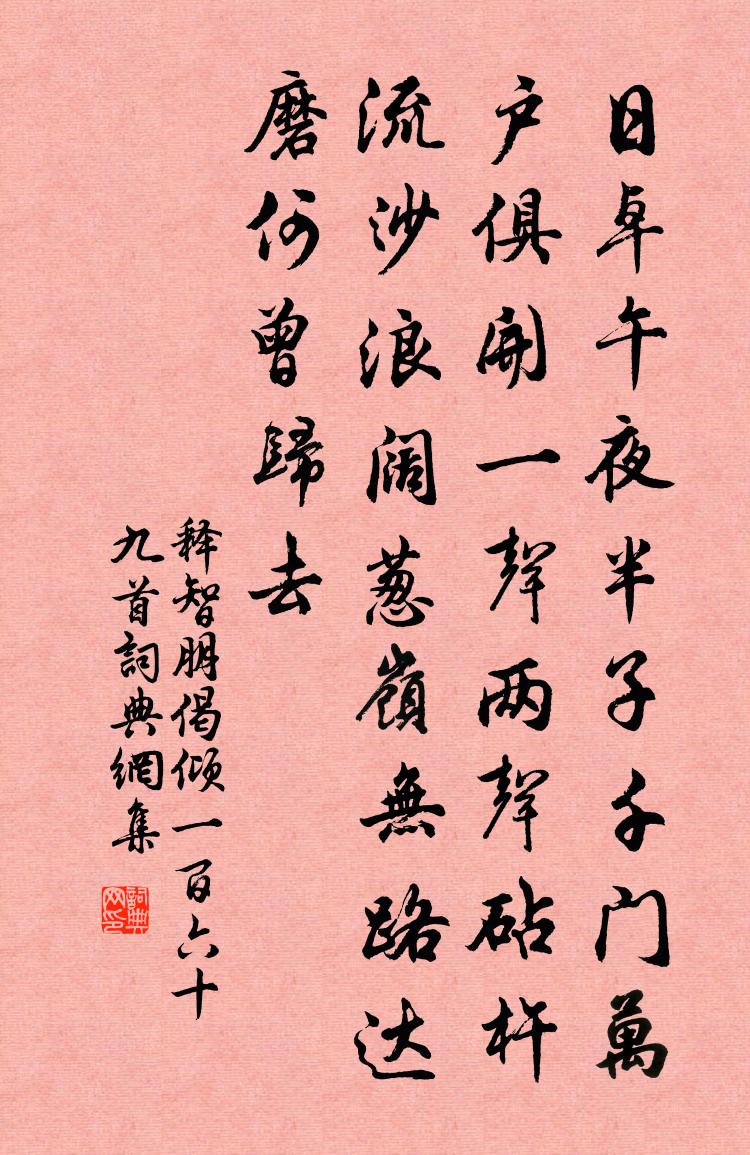 日卓午夜半子千门萬
户俱開一聲两聲砧杵
流沙浪阔葱嶺無路达
磨何曾歸去
释智朋偈倾一百六十
九首詞典網集
詞典网印